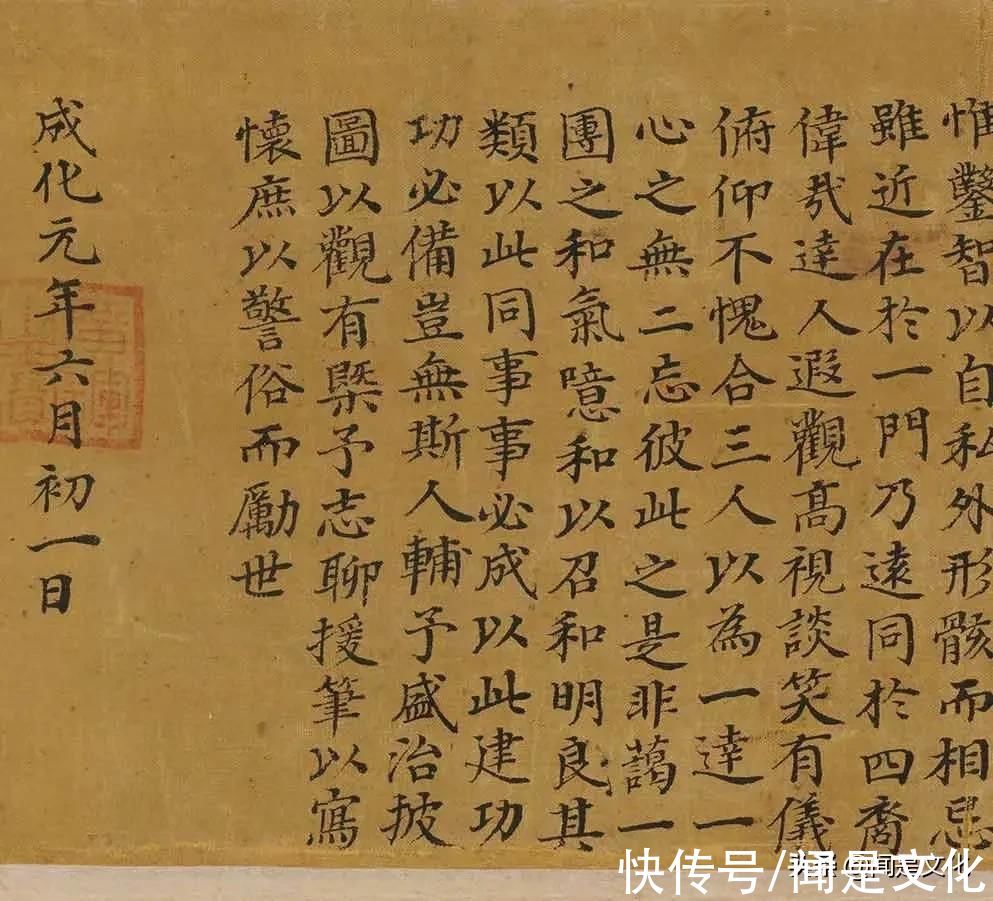 惟鑿智以自私外形骸而相忌
雖近在於一門乃遠同於四裔
偉哉達人遐觀高視談笑有儀
俯仰不愧合三人以為一達一
心之無二忘彼此之是非藹一
團之和氣噫和以召和明良其
類以此同事事必成以此建功
功必備豈無斯人輔予盛治披
圖以觀有槩予志聊援筆以寫
懷庶以警俗而勵世
成化元年六月初一日
快传号/闻是文化
@闻是文化